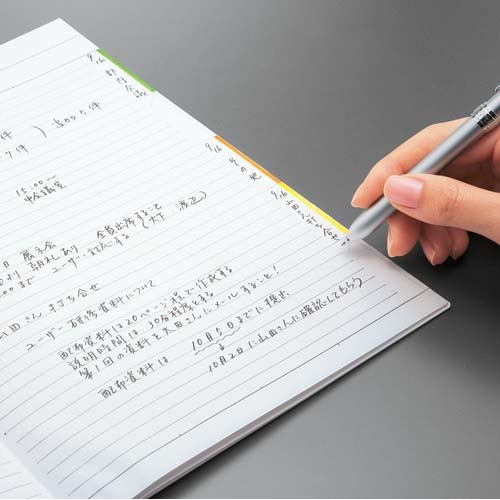 件
7件
) 追加5件
15:00〜
中会議室
日 展示会
より 朝礼あり 全員出席すること
まで ユーザー対応する (大下・渡辺)
山田さん 打ち合せ
ユーザー研修資料について
配布資料は20ページ程で作成する
説明時間は30分程度とする
第1回の資料を太田さんにメールすること!
配布資料は 10月5日までに提出
10月2日に山田さんに確認してもらう
9/6 部内会議
9/6 その他
9/6 山田さん打ち合せ